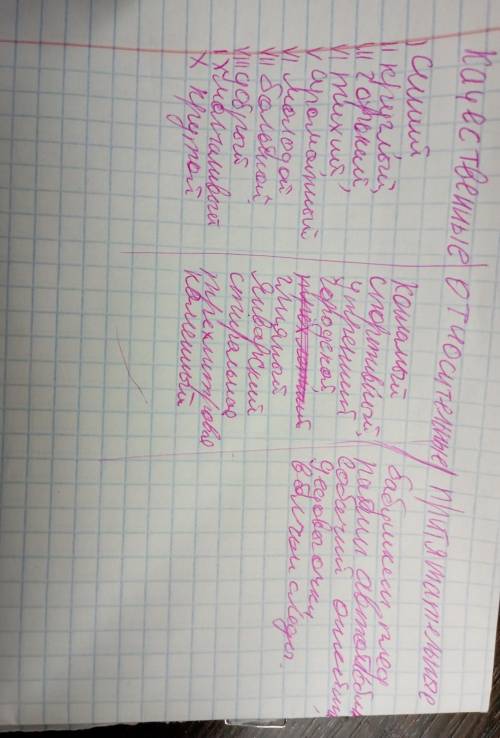 качественные относительные притятательные
I синий
II круглый,
III горький
IV тихий,
V ароматный
VI молодой
VII больной
VIII добрый
IX молчаливый
X крутой
кожаный
спортивный,
утренний
городской,
глиняный
январский
стиральное
трехлитровые
каменный
бабушкин плед
папин автомобиль
собачий ошейник,
дедовы очки
волчьи следы.